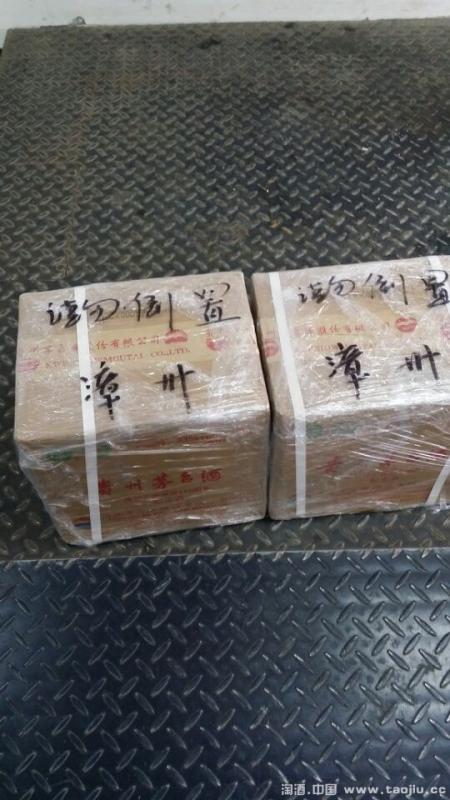 请勿倒置
份有限公司
MOUTAI CO.,LTD.
漳州
贵州茅台酒
请勿倒置
股份有限
漳州
淘酒.中国 www.taojiu.cc